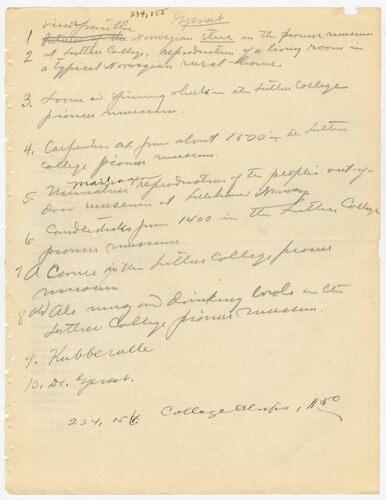 234,155
Gjerset
view from the
1 Norwegian stue in the pioneer museum
2 at Luther College, reproduction of a living room in
a typical Norwegian rural home.
3. Loom and spinning wheels in the Luther College
pioneer museum.
4. Carpenters art from about 1500 in the Luther
college pioneer museum.
5 Miniature reproduction of the peoples out of
door museum at Lillehammer Norway.
6 Candlesticks from 1400 in the Luther College
pioneer museum.
7 A Corner in the Luther College pioneer
museum.
8 old Ale mug and drinking bowls in the
Luther College pioneer museum.
9. Kubberulle
10. Dr. Gjerset.
234, 156 College Chips,